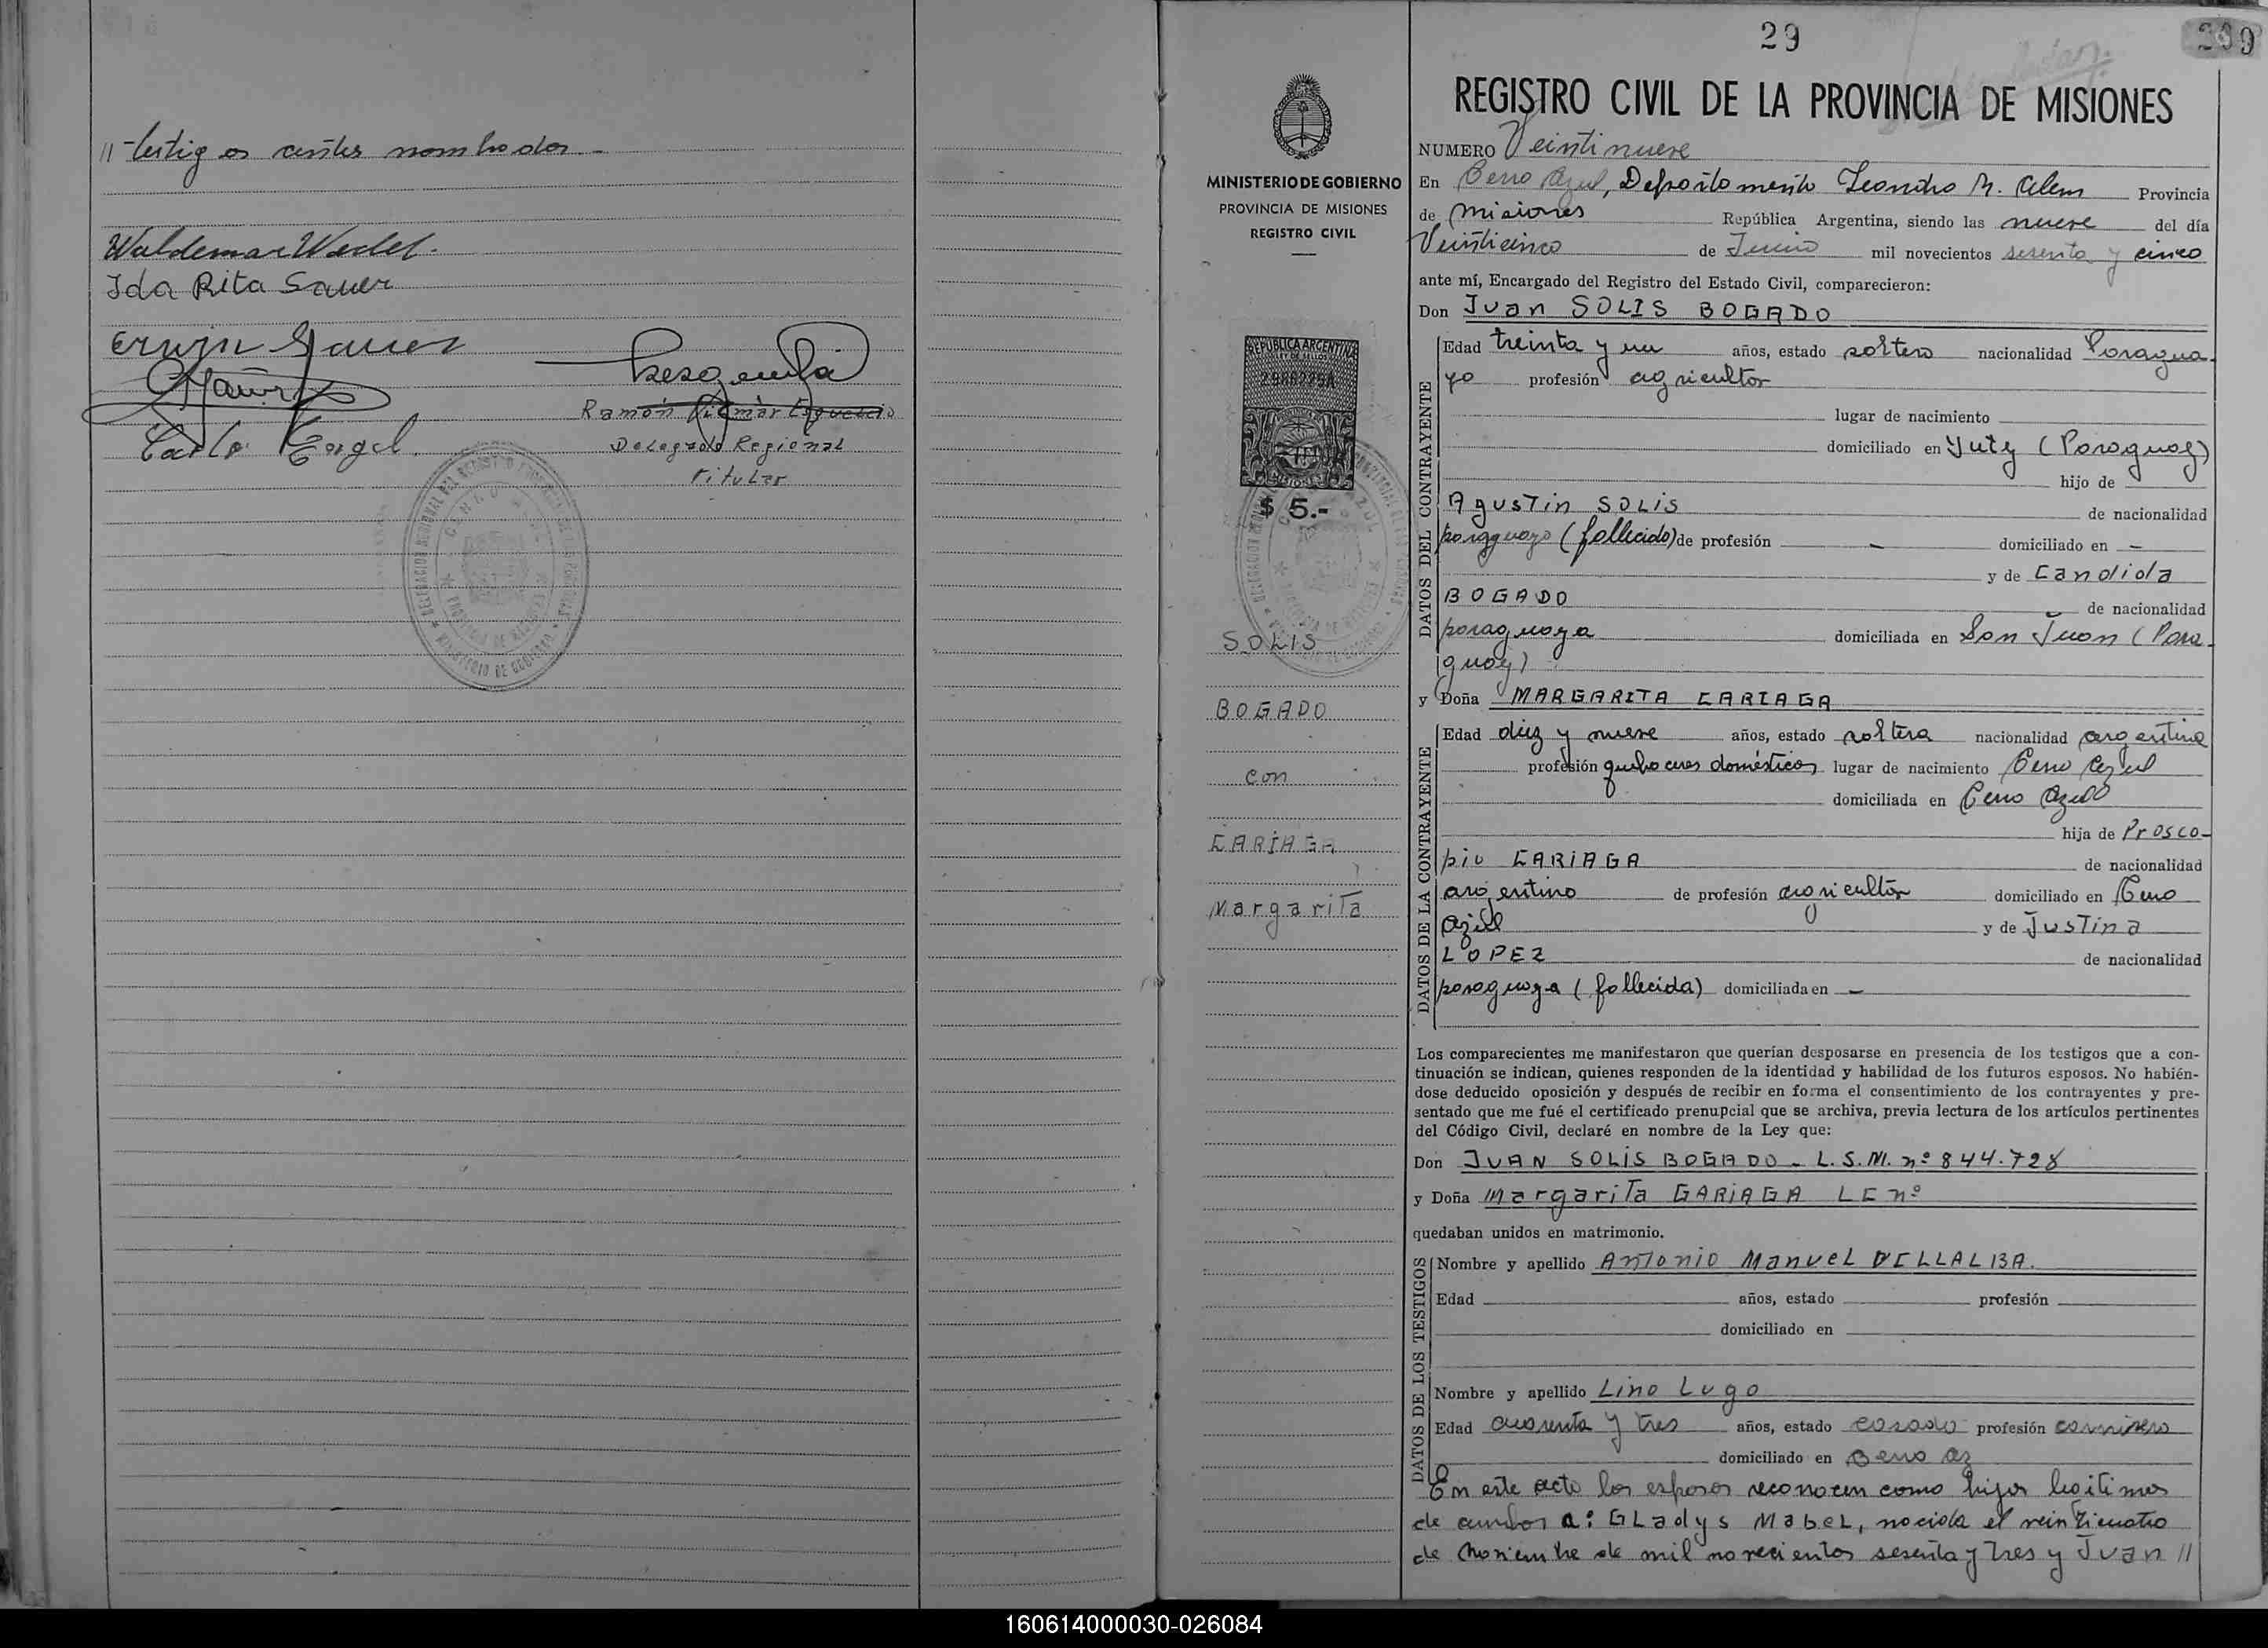 // testigos antes nombrados -
Waldemar Wedel.
Ida Rita Sauer
Erwin Sauer
Carlo Engel.
Ramón
Delegado Regional
Titular
29
REGISTRO CIVIL DE LA PROVINCIA DE MISIONES
MINISTERIO DE GOBIERNO
PROVINCIA DE MISIONES
REGISTRO CIVIL
REPUBLICA ARGENTINA
LEY DE SELLOS
MISIONES
$ 5.-
SOLIS
BOGADO
con
CARIAGA
Margarita
NUMERO Veintinueve
En Cerro Azul, Departamento Leandro N. Alem Provincia
de Misiones República Argentina, siendo las nueve del día
Veinticinco de Junio mil novecientos sesenta y cinco
ante mí, Encargado del Registro del Estado Civil, comparecieron:
Don Juan SOLIS BOGADO
DATOS DEL CONTRAYENTE
Edad treinta y un años, estado soltero nacionalidad Paragua-
yo profesión agricultor
lugar de nacimiento
domiciliado en Yuty (Paraguay)
hijo de
Agustin SOLIS de nacionalidad
paraguayo (fallecido) de profesión - domiciliado en -
y de Candida
BOGADO de nacionalidad
paraguaya domiciliada en San Juan (Para-
guay)
y Doña MARGARITA CARIAGA
DATOS DE LA CONTRAYENTE
Edad diez y nueve años, estado soltera nacionalidad argentina
profesión quehaceres domésticos lugar de nacimiento Cerro Azul
domiciliada en Cerro Azul
hija de Prosco-
pio CARIAGA de nacionalidad
argentino de profesión agricultor domiciliado en Cerro
Azul y de Justina
LOPEZ de nacionalidad
paraguaya (fallecida) domiciliada en -
Los comparecientes me manifestaron que querían desposarse en presencia de los testigos que a con-
tinuación se indican, quienes responden de la identidad y habilidad de los futuros esposos. No habién-
dose deducido oposición y después de recibir en forma el consentimiento de los contrayentes y pre-
sentado que me fué el certificado prenupcial que se archiva, previa lectura de los artículos pertinentes
del Código Civil, declaré en nombre de la Ley que:
Don JUAN SOLIS BOGADO - L.S.M. nº 844.728
y Doña Margarita GARIAGA LC nº
quedaban unidos en matrimonio.
DATOS DE LOS TESTIGOS
Nombre y apellido Antonio Manuel DELLALBA.
Edad años, estado profesión
domiciliado en
Nombre y apellido Lino Lugo
Edad cuarenta y tres años, estado casado profesión
domiciliado en Cerro Az
En este acto los esposos reconocen como hijos legitimos
de ambos a: GLadys MabeL, nacida el veinticuatro
de Noviembre de mil novecientos sesenta y tres y Juan //
160614000030-026084